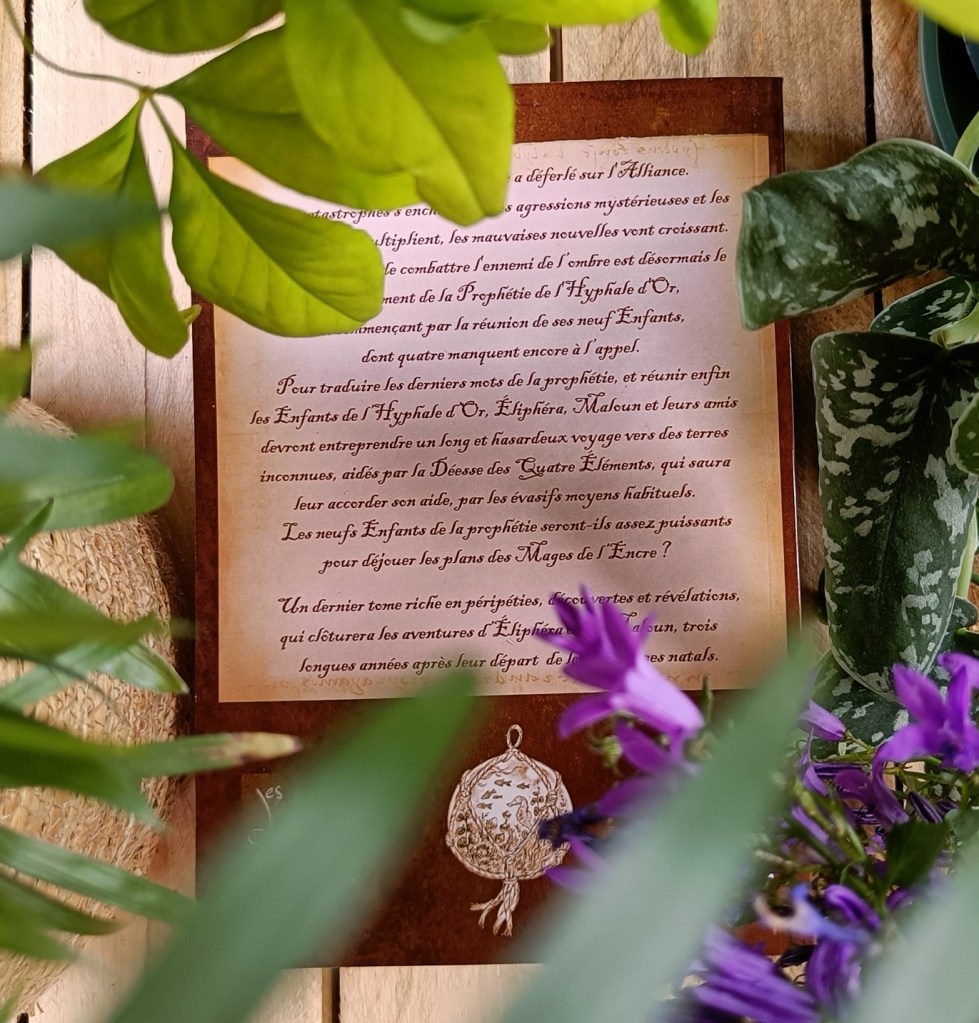 a déferlé sur l'Alliance.
agressions mystérieuses et les
les mauvaises nouvelles vont croissant.
combattre l'ennemi de l'ombre est désormais le
de la Prophétie de l'Hyphale d'Or,
par la réunion de ses neuf Enfants,
dont quatre manquent encore à l'appel.
Pour traduire les derniers mots de la prophétie, et réunir enfin
les Enfants de l'Hyphale d'Or, Éliphéra, Maloun et leurs amis
devront entreprendre un long et hasardeux voyage vers des terres
inconnues, aidés par la Déesse des Quatre Éléments, qui saura
leur accorder son aide, par les évasifs moyens habituels.
Les neufs Enfants de la prophétie seront-ils assez puissants
pour déjouer les plans des Mages de l'Encre ?
Un dernier tome riche en péripéties, découvertes et révélations,
qui clôturera les aventures d'Éliphéra Maloun, trois
longues années après leur départ de natals.